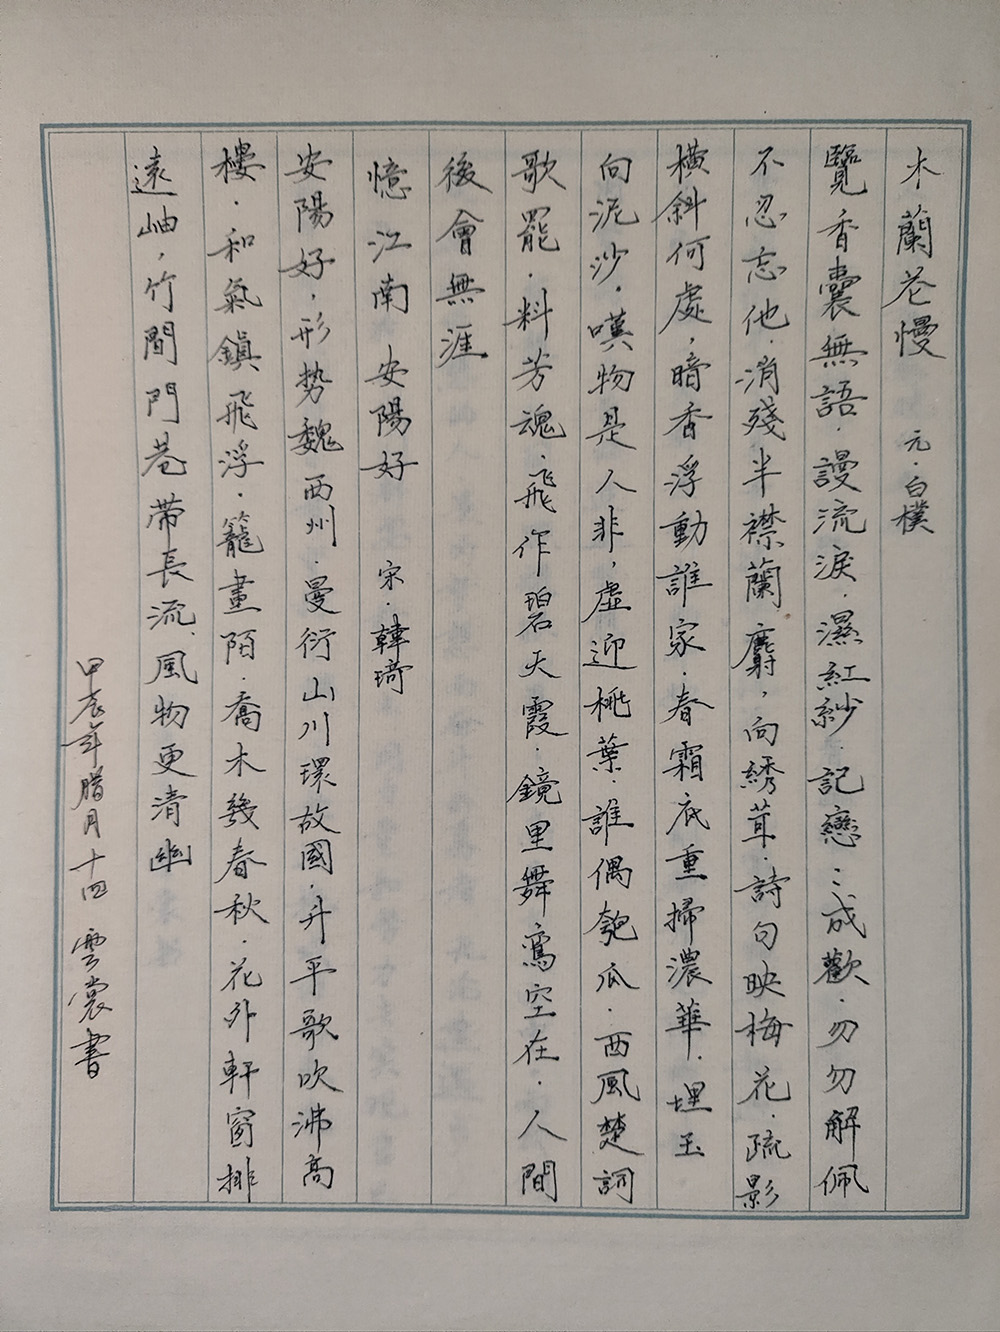 木蘭花慢 元·白樸
覽香囊無語·謾流淚·濕紅紗·記戀ミ成歡·勿勿解佩
不忍忘他·消殘半襟蘭麝,向綉茸·詩句映梅花·疏影
橫斜何處,暗香浮動誰家·春霜底重掃濃華·埋玉
向泥沙,嘆物是人非,虛迎桃葉·誰偶匏瓜·西風楚詞
歌罷·料芳魂·飛作碧天霞·鏡里舞鸞空在·人間
後會無涯
憶江南 安陽好 宋·韓琦
安陽好,形势魏西州·曼衍山川環故國·升平歌吹沸高
樓·和氣鎮飛浮·籠畫陌·喬木幾春秋·花外軒窗排
遠岫,竹間門巷带長流、風物更清幽
甲辰年腊月十四 雲裳書